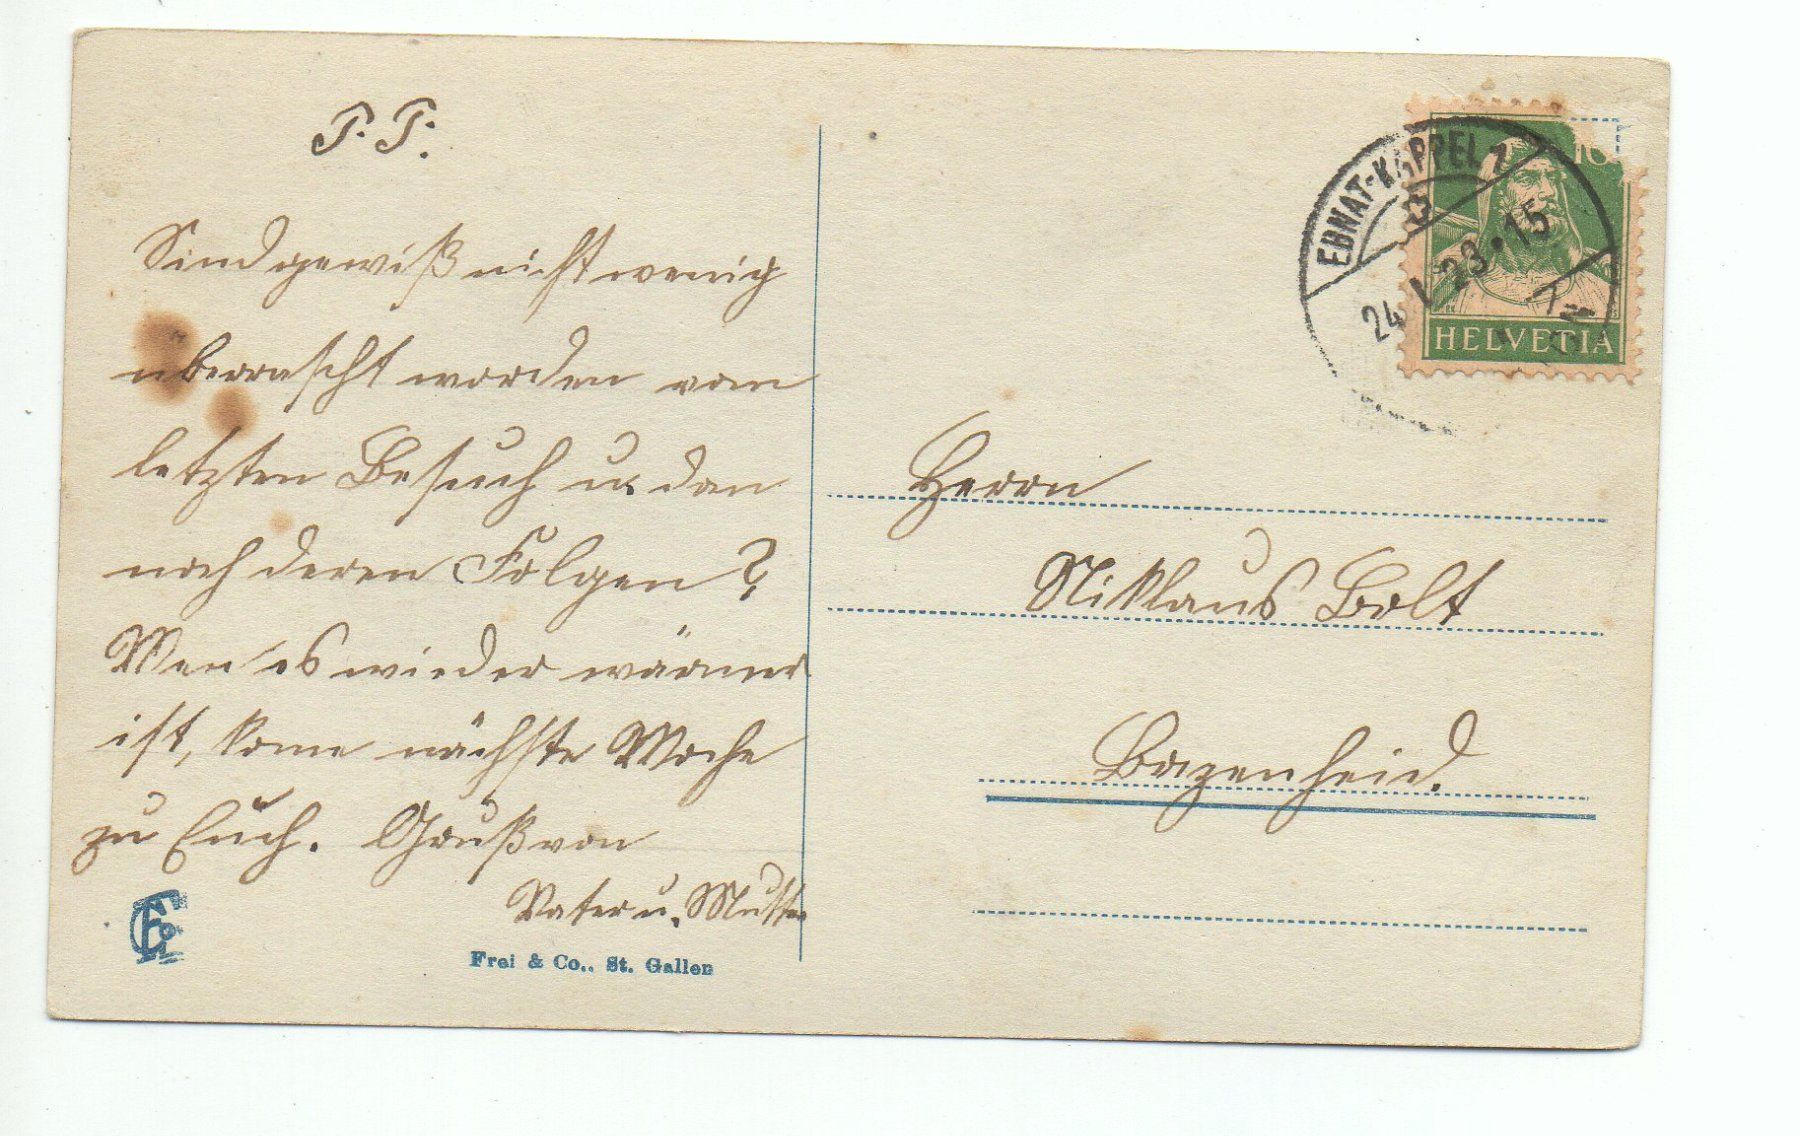 P. P.
Sind gewiß nicht wenig
überrascht worden vom
letzten Besuch u. dan
noch deren Folgen?
Wen es wieder wärmer
ist, kome nächste Woche
zu Euch. Gruß von
Vater u. Mutter
Frei & Co., St. Gallen
EBNAT-KAPPEL 1
24. I. 23. 15
10
HELVETIA
Herrn
Niklaus Bolt
Bazenheid.